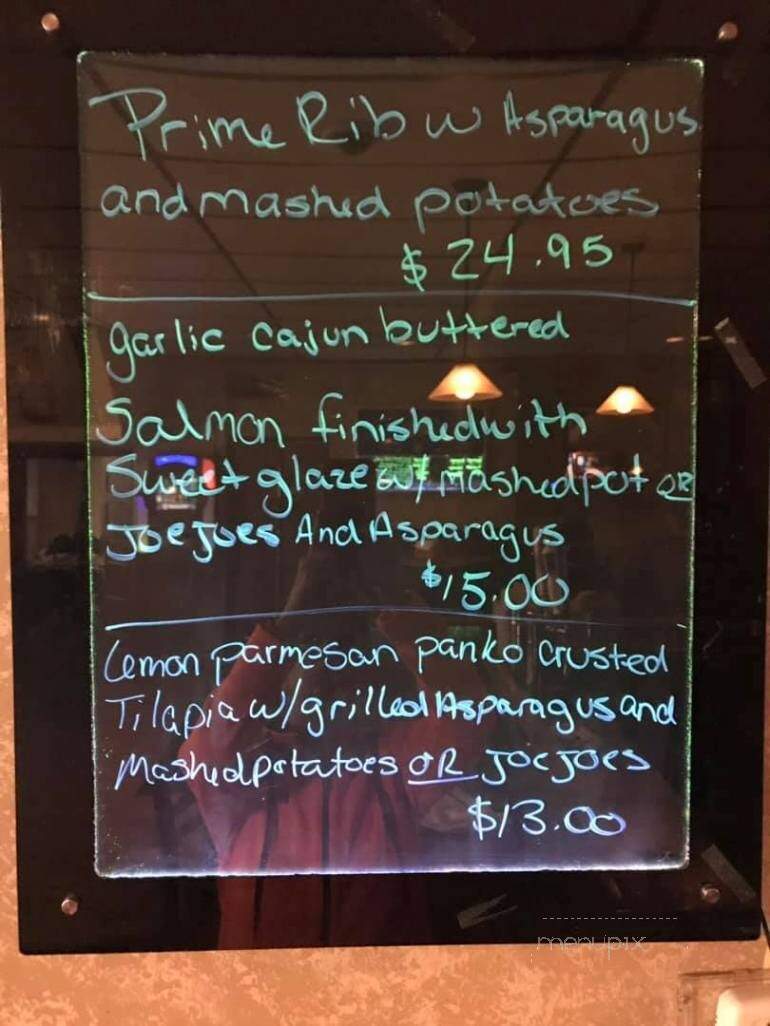 Prime Rib w Asparagus
and mashed potatoes
$24.95
garlic cajun buttered
Salmon finished with
Sweet glaze w/ mashed pot OR
JoeJoes And Asparagus
$15.00
Lemon parmesan panko crusted
Tilapia w/grilled Asparagus and
Mashed potatoes OR JoeJoes
$13.00
menupix